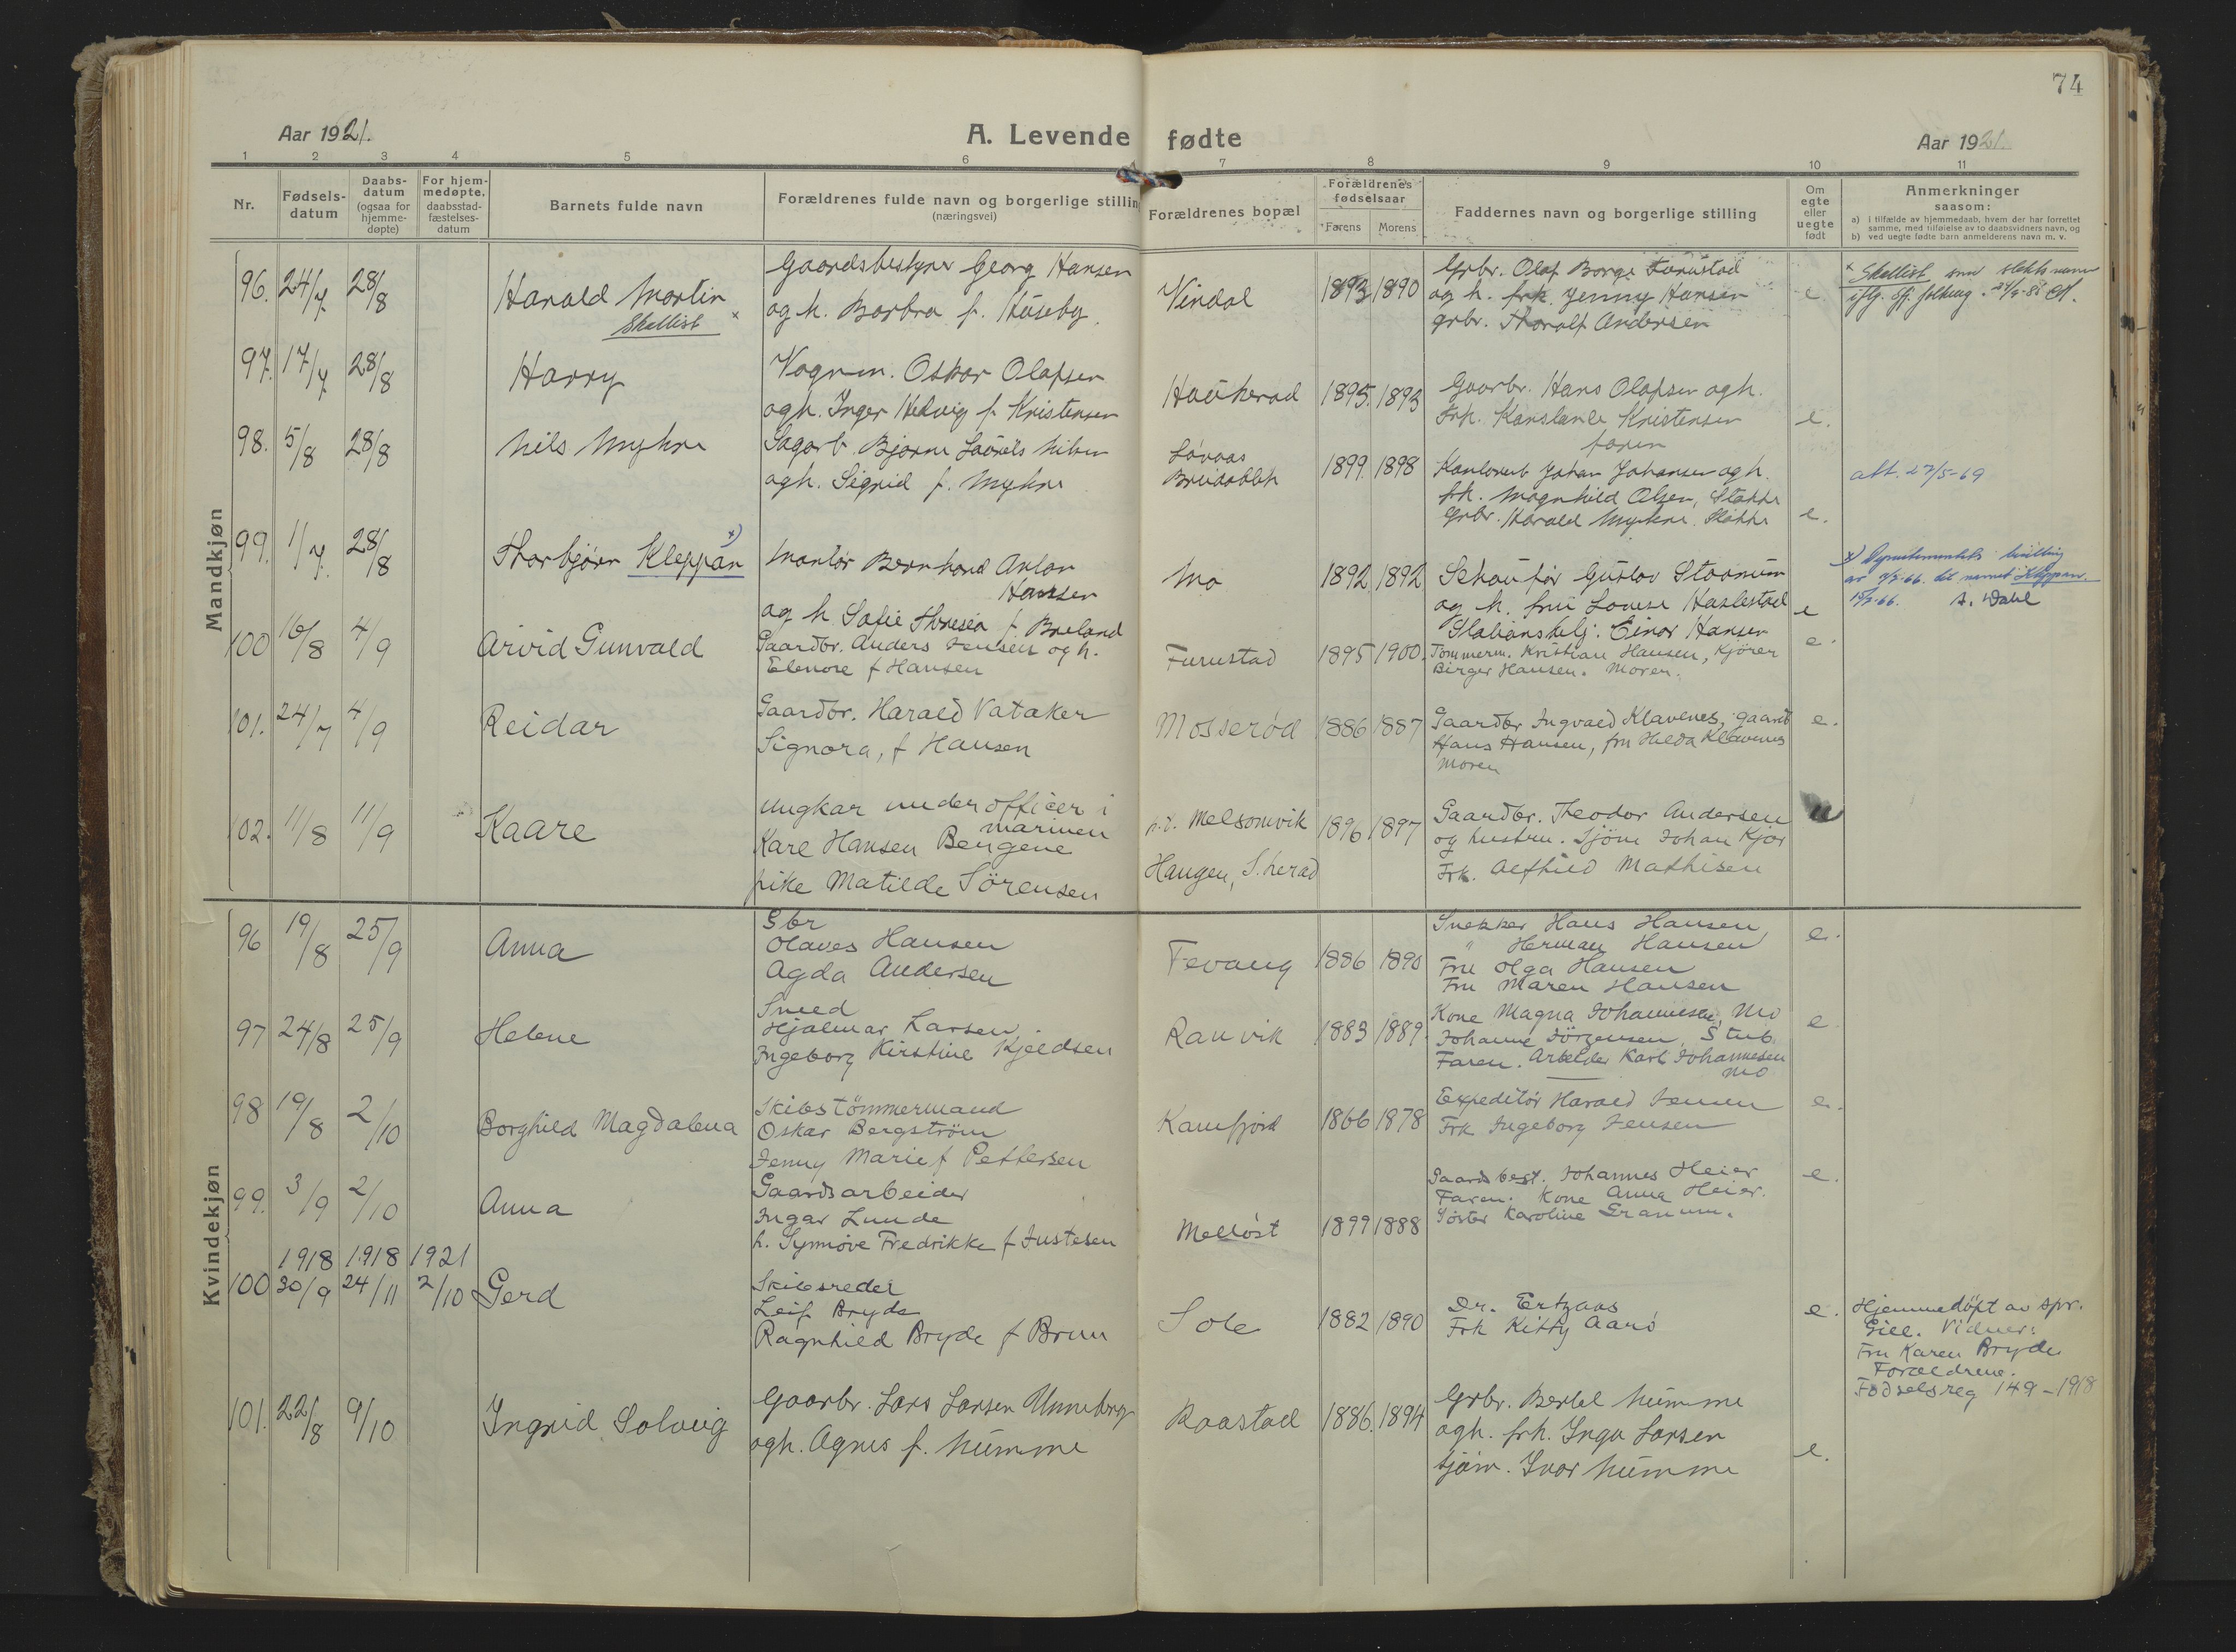 74
Aar 1921.
A. Levende fødte
Aar 1921.
1 2 3 4 5 6 7 8 9 10 11
Nr.
Fødsels-
datum
Daabs-
datum
(ogsaa for
hjemme-
døpte)
For hjem-
medøpte,
daabsstad-
fæstelses-
datum
Barnets fulde navn
Forældrenes fulde navn og borgerlige stilling
(næringsvei)
Forældrenes bopæl
Forældrenes
fødselsaar
Farens Morens
Faddernes navn og borgerlige stilling
Om
egte
eller
uegte
født
Anmerkninger
saasom:
a) i tilfælde av hjemmedaab, hvem der har forrettet
samme, med tilføielse av to daabsvidners navn, og
b) ved uegte fødte barn anmelderens navn m. v.
Mandkjøn
96. 24/7 28/8
Harald Martin
Skellist x
Gaardsbestyrer Georg Hansen
og h. Barbra f. Huseby.
Vindal
1893 1890
Grbr. Olaf Borge Furustad
og h. frk. Jenny Hansen
grbr. Thoralf Andersen
e.
x Skellist som slektsnavn
97. 17/7 28/8
Harry
Vognm. Oskar Olafsen
og h. Inger Hedvig f. Kristensen
Haukerød
1895. 1893
Gaarbr. Hans Olafsen og h.
Frk. Konstanse Kristensen
faren
e.
98. 5/8 28/8
Nils Myhre
Sagarb. Bjarne Laurits Nilsen
og h. Sigrid f. Myhre
Løvaas
1899. 1898
Kontorarb. Johan Johansen og h.
frk. Magnhild Olsen, Stokke
Grbr. Harald Myhre. Stokke
e.
att. 27/5-69
99. 1/7. 28/8
Thorbjørn Kleppan x)
Montør Bernhard Anton
Hansen
og h. Sofie Theresia f. Breland
Mo
1892 1892
Schaufør Gustav Staanum
og h. frue Lovise Haslestad
Stationsbetj. Einar Hansen
e
x) Departementets bevilling
av 7/3-66 til navnet Kleppan.
A. Dahl
100 16/8 4/9
Arvid Gunvald
Gaardbr. Anders Jensen og h.
Elenore f Hansen
Furustad
1895 1900.
Tømmerm. Kristian Hansen, Kjører
Birger Hansen. Moren.
e.
101. 24/7 4/9
Reidar
Gaardbr. Harald Vataker
Signora, f Hansen
Mosserød
1886 1887
Gaardbr Ingvald Klavenes, gaardb
Hans Hansen, fru Hilda Klavenes
Moren
e.
102. 11/8 11/9
Kaare
Ungkar underofficer i
marinen
Karl Hansen Bengene
pike Matilde Sörensen
p.t. Melsomvik
Haugen, S.herad
1896 1897
Gaardbr. Theodor Andersen
og hustru. Sjöm Johan Kjør
Frk. Alfhild Mathisen
u
Kvindekjøn
96 19/8 25/9
Anna
Gbr
Olaves Hansen
Agda Andersen
Fevang
1886 1890
Snekker Hans Hansen
" Herman Hansen
Fru Olga Hansen
Fru Maren Hansen
e.
97 24/8 25/9
Helene
Smed
Hjalmar Larsen.
Ingeborg Kirstine Kjeldsen
Ranvik
1883 1889.
Kone Magna Johannesen, Mo
Johanne Jörgensen, Stub.
Faren. Arbeider Karl Johannesen
Mo
e.
98 19/8 2/10
Borghild Magdalena
Skibstömmermand
Oskar Bergström
Jenny Marie f Pettersen
Kamfjord
1866 1878
Expeditör Harald Jensen
Frk Ingeborg Jensen
e.
99. 3/9 2/10
Anna
Gaardsarbeider
Ingar Lunde
h. Synnöve Fredrikke f Justesen
Melløst
1899 1888
Gaardsbest. Johannes Heier
Faren. Kone Anna Heier.
Söster Karoline Granum.
e.
1918 1918 1921
100 30/9 24/11 2/10
Gerd
Skibsreder
Leif Bryde
Ragnhild Bryde f Brun
Sole
1882 1890
Dr. Ertzaas
Frk Kitty Aarö
e.
Hjemmedöpt av spr.
Gill. Vidner:
Fru Karen Bryde
Forældrene.
Födselsreg 149-1918
101. 22/8 9/10
Ingrid Solveig
Gaarbr. Lars Larsen Unneberg
og h. Agnes f. Numme
Raastad
1886. 1894
Grbr. Bertel Numme
og h. frk. Inga Larsen
sjøm. Ivar Numme
e.